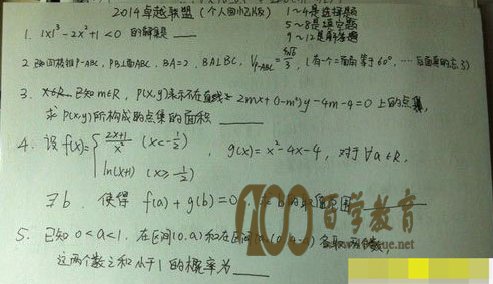 2014卓越联盟 (个人回忆版)
1~4是选择题
5~8是填空题
9~12是解答题
1. |x|³-2x²+1<0 的解集是
2. 三棱锥P-ABC, PB⊥面ABC, BA=2, BA⊥BC, V_{P-ABC}=, (有一二面角等于60°, … 后面真的忘了)
3. 已知m∈R, P(x,y)表示不在直线 2mx+(1-m²)y-4m-4=0 上的点集,
求 P(x,y)所构成的点集的面积
4. 设 f(x)={ (2x+1)/x² (x<-1/2)
ln(x+1) (x≥-1/2)
, g(x)=x²-4x-4, 对于∀a∈R,
∃b 使得 f(a)+g(b)=0, 求 b 的取值范围
5. 已知 0<a<1, 在区间(0,a)和在区间 各取两个数,
这两个数之和小于1的概率为
100百学教育